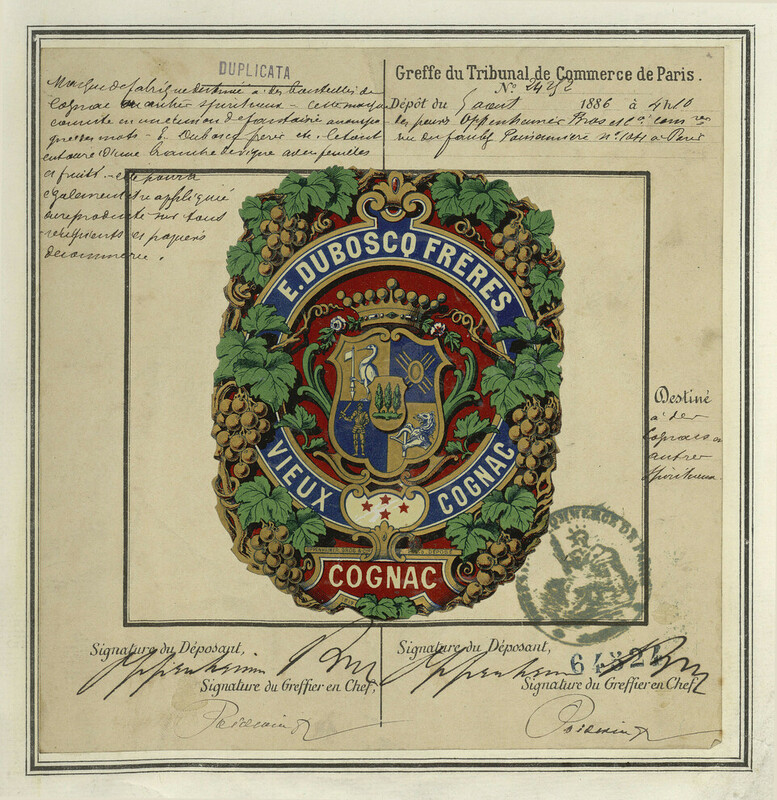 DUPLICATA
Marque de fabrique destinée à des bouteilles de
Cognac ou autres spiritueux - cette marque
consiste en un écusson de fantaisie avec
ces mots - E. Duboscq frères et
entouré d'une branche de vigne avec feuilles
et fruits. - elle pourra
également être appliquée
ou reproduite sur tous
récipients et papiers
de commerce.
Greffe du Tribunal de Commerce de Paris.
N° 24252
Dépôt du 5 août 1886 à 4h10
par Oppenheimer Bros et
rue du faubg Poissonnière n° 104 à Paris
E. DUBOSCQ FRÈRES
VIEUX COGNAC
COGNAC
Destiné
à des
cognacs ou
autres
spiritueux.
COMMERCE DE
64324
Signature du Déposant,
Oppenheimer Bros
Signature du Greffier en Chef,
Signature du Déposant,
Oppenheimer Bros
Signature du Greffier en Chef,